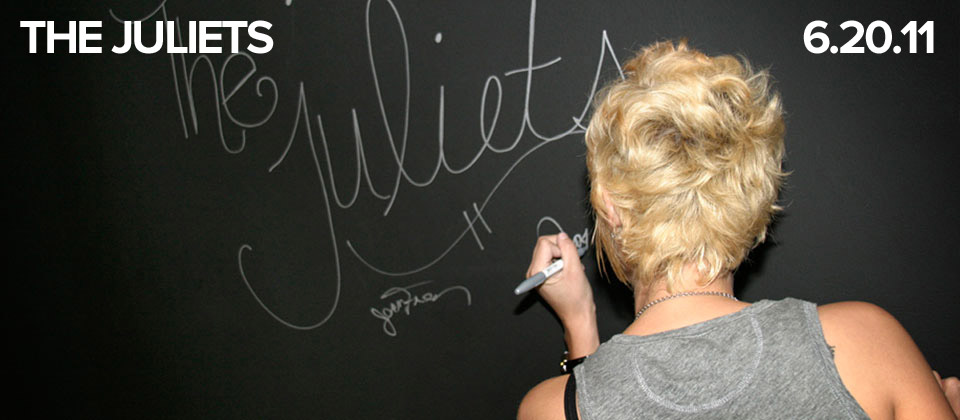 THE JULIETS 6.20.11
The
Juliets